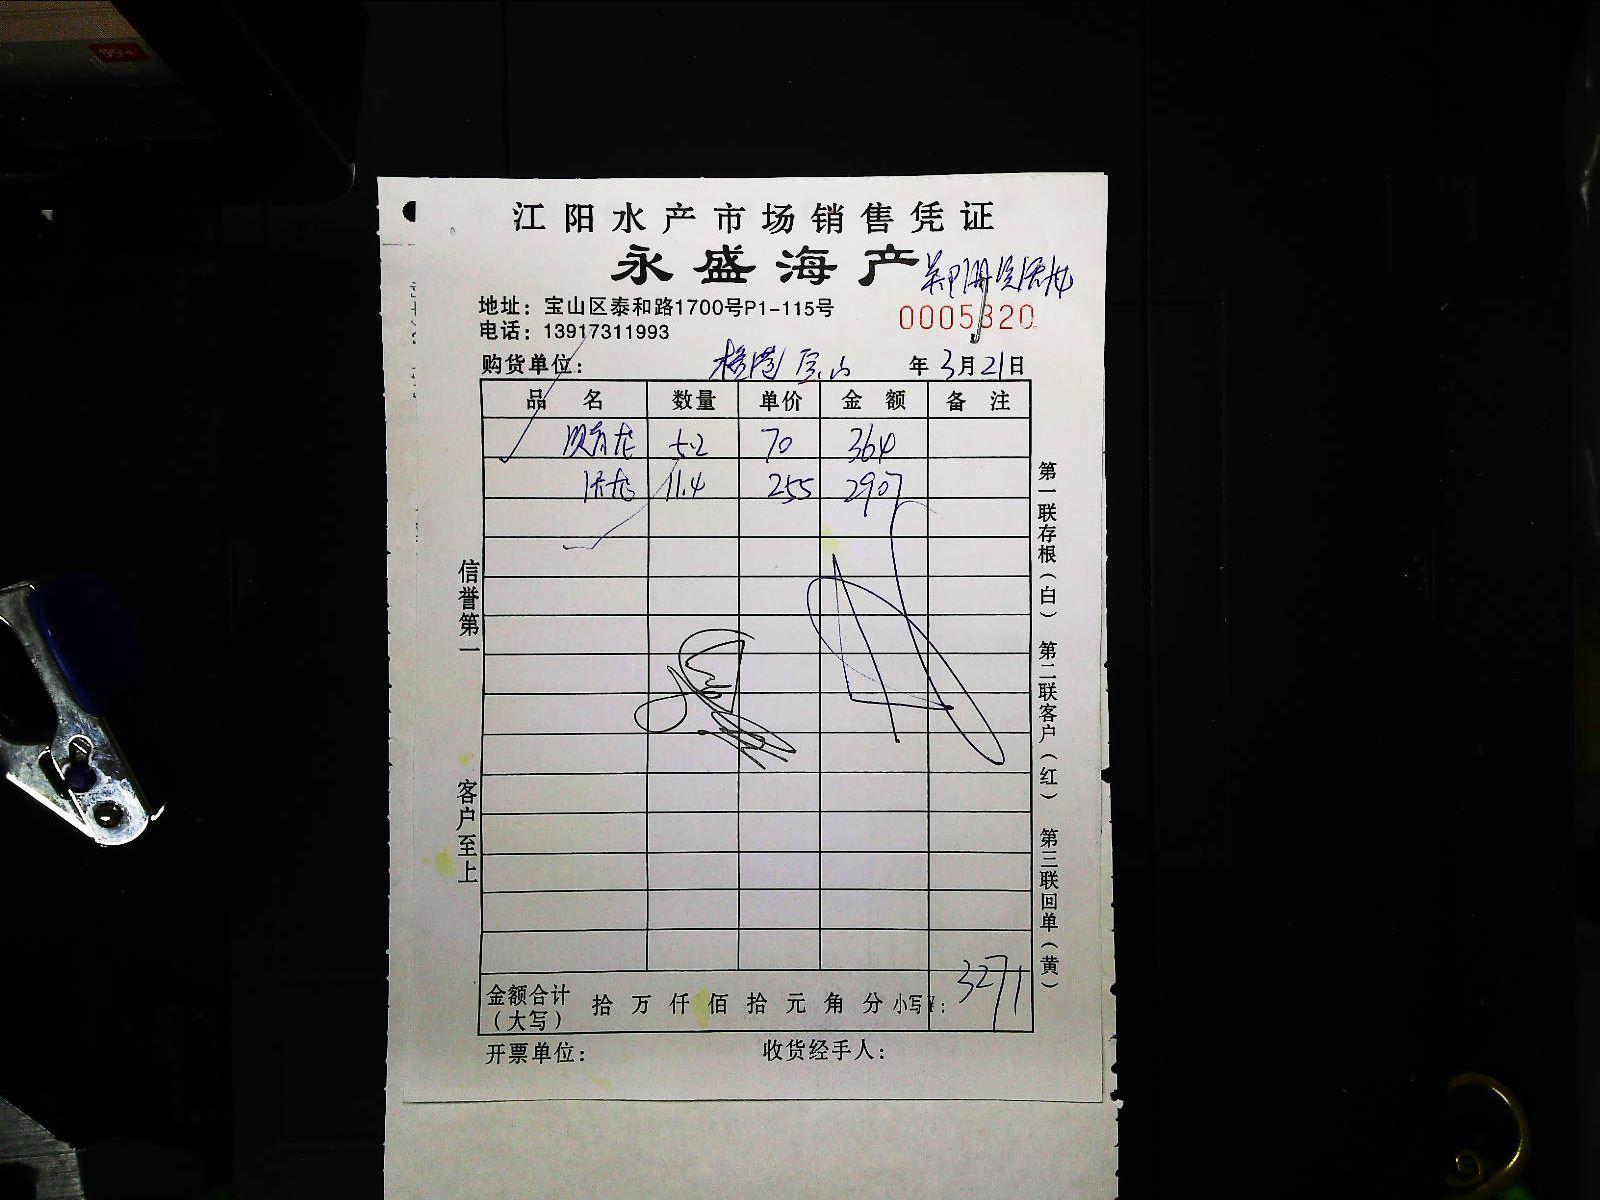 江阳水产市场销售凭证
永盛海产
地址：宝山区泰和路1700号P1-115号
0005320
电话：13917311993
购货单位： 宝山 年 3月21日
品 名 数量 单价 金 额 备 注
5.2 70 364
11.4 255 2907
信誉第一 客户至上
第一联存根（白） 第二联客户（红） 第三联回单（黄）
金额合计（大写） 拾 万 仟 佰 拾 元 角 分 小写¥： 3271
开票单位： 收货经手人：
99+